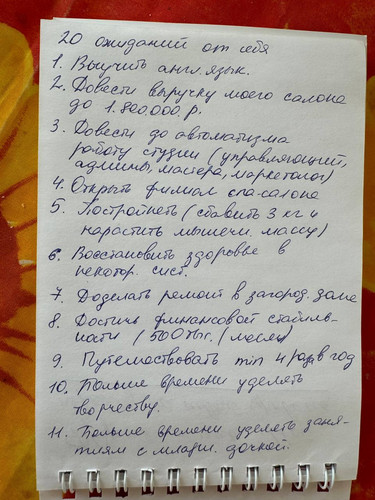 20 ожиданий от себя
1. Выучить англ. язык.
2. Довести выручку моего салона
до 1.800.000.р.
3. Довести до автоматизма
работу студии (управляющий,
админы, мастера, маркетолог)
4. Открыть филиал спа-салона
5. Постройнеть (сбавить 3 кг и
нарастить мышечн. массу)
6. Восстановить здоровье в
некотор. сист.
7. Доделать ремонт в загород. доме
8. Достичь финансовой стабиль-
ности (500 тыс. / месяц)
9. Путешествовать min 4 раза в год
10. Больше времени уделять
творчеству.
11. Больше времени уделять заня-
тиям с младш. дочкой.